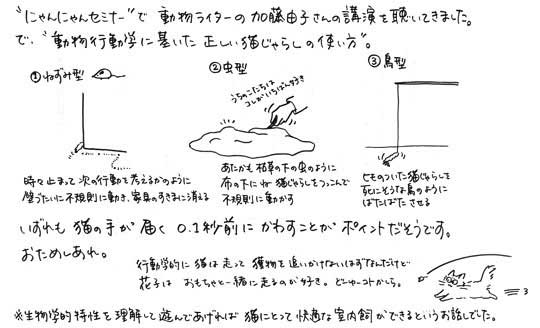 "にゃんにゃんセミナー"で 動物ライターの加藤由子さんの講演を聴いてきました。
で、"動物行動学に基いた正しい猫じゃらしの使い方"。
①ねずみ型
時々止まって次の行動を考えるかのように
壁づたいに不規則に動き、家具のすきまに消える
②虫型
うちのこたちは
コレがいちばん好き
あたかも枯草の下の虫のように
布の下にね 猫じゃらしをつっこんで
不規則に動かす
③鳥型
ひものついた猫じゃらしを
死にそうな鳥のように
ばたばたさせる
いずれも 猫の手が届く 0.1秒前に かわすことが ポイントだそうです。
おためしあれ。
行動学的に 猫は走って 獲物を追いかけないはずなんだけど
花子は おもちゃと一緒に走るのが好き。どーゆーコトかしら。
※生物学的特性を理解して遊んであげれば 猫にとって快適な室内飼ができるというお話でした。